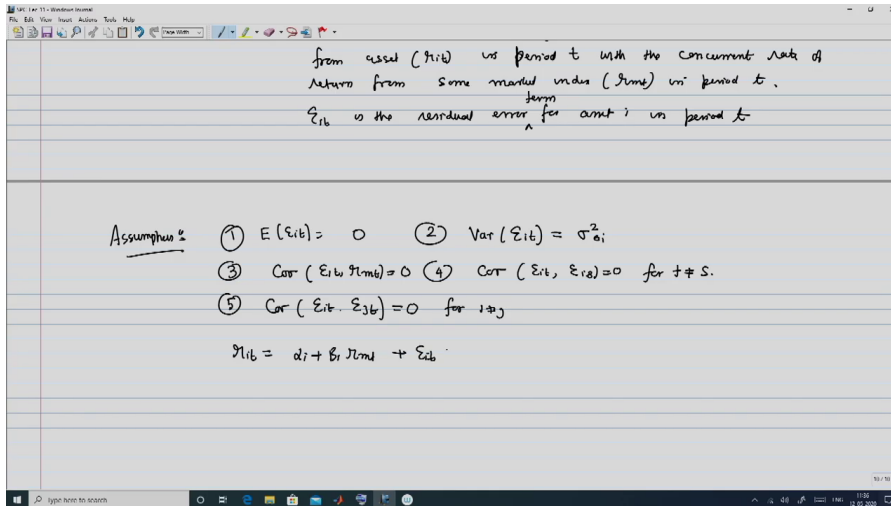 SPC Lec 11 - Windows Journal
File Edit View Insert Actions Tools Help
Page Width
from asset (rit) in period t with the concurrent rate of
return from some market index (rmt) in period t.
term
εit is the residual error ^ for asset i in period t
Assumptions: ① E(εit) = 0 ② Var(εit) = σ²ei
③ Cor(εit, rmt) = 0 ④ Cor(εit, εis) = 0 for t ≠ s.
⑤ Cor(εit. εjt) = 0 for i ≠ j
rit = αi + βi rmt + εit
10 / 10
Type here to search
ENG 11:36
12-05-2020